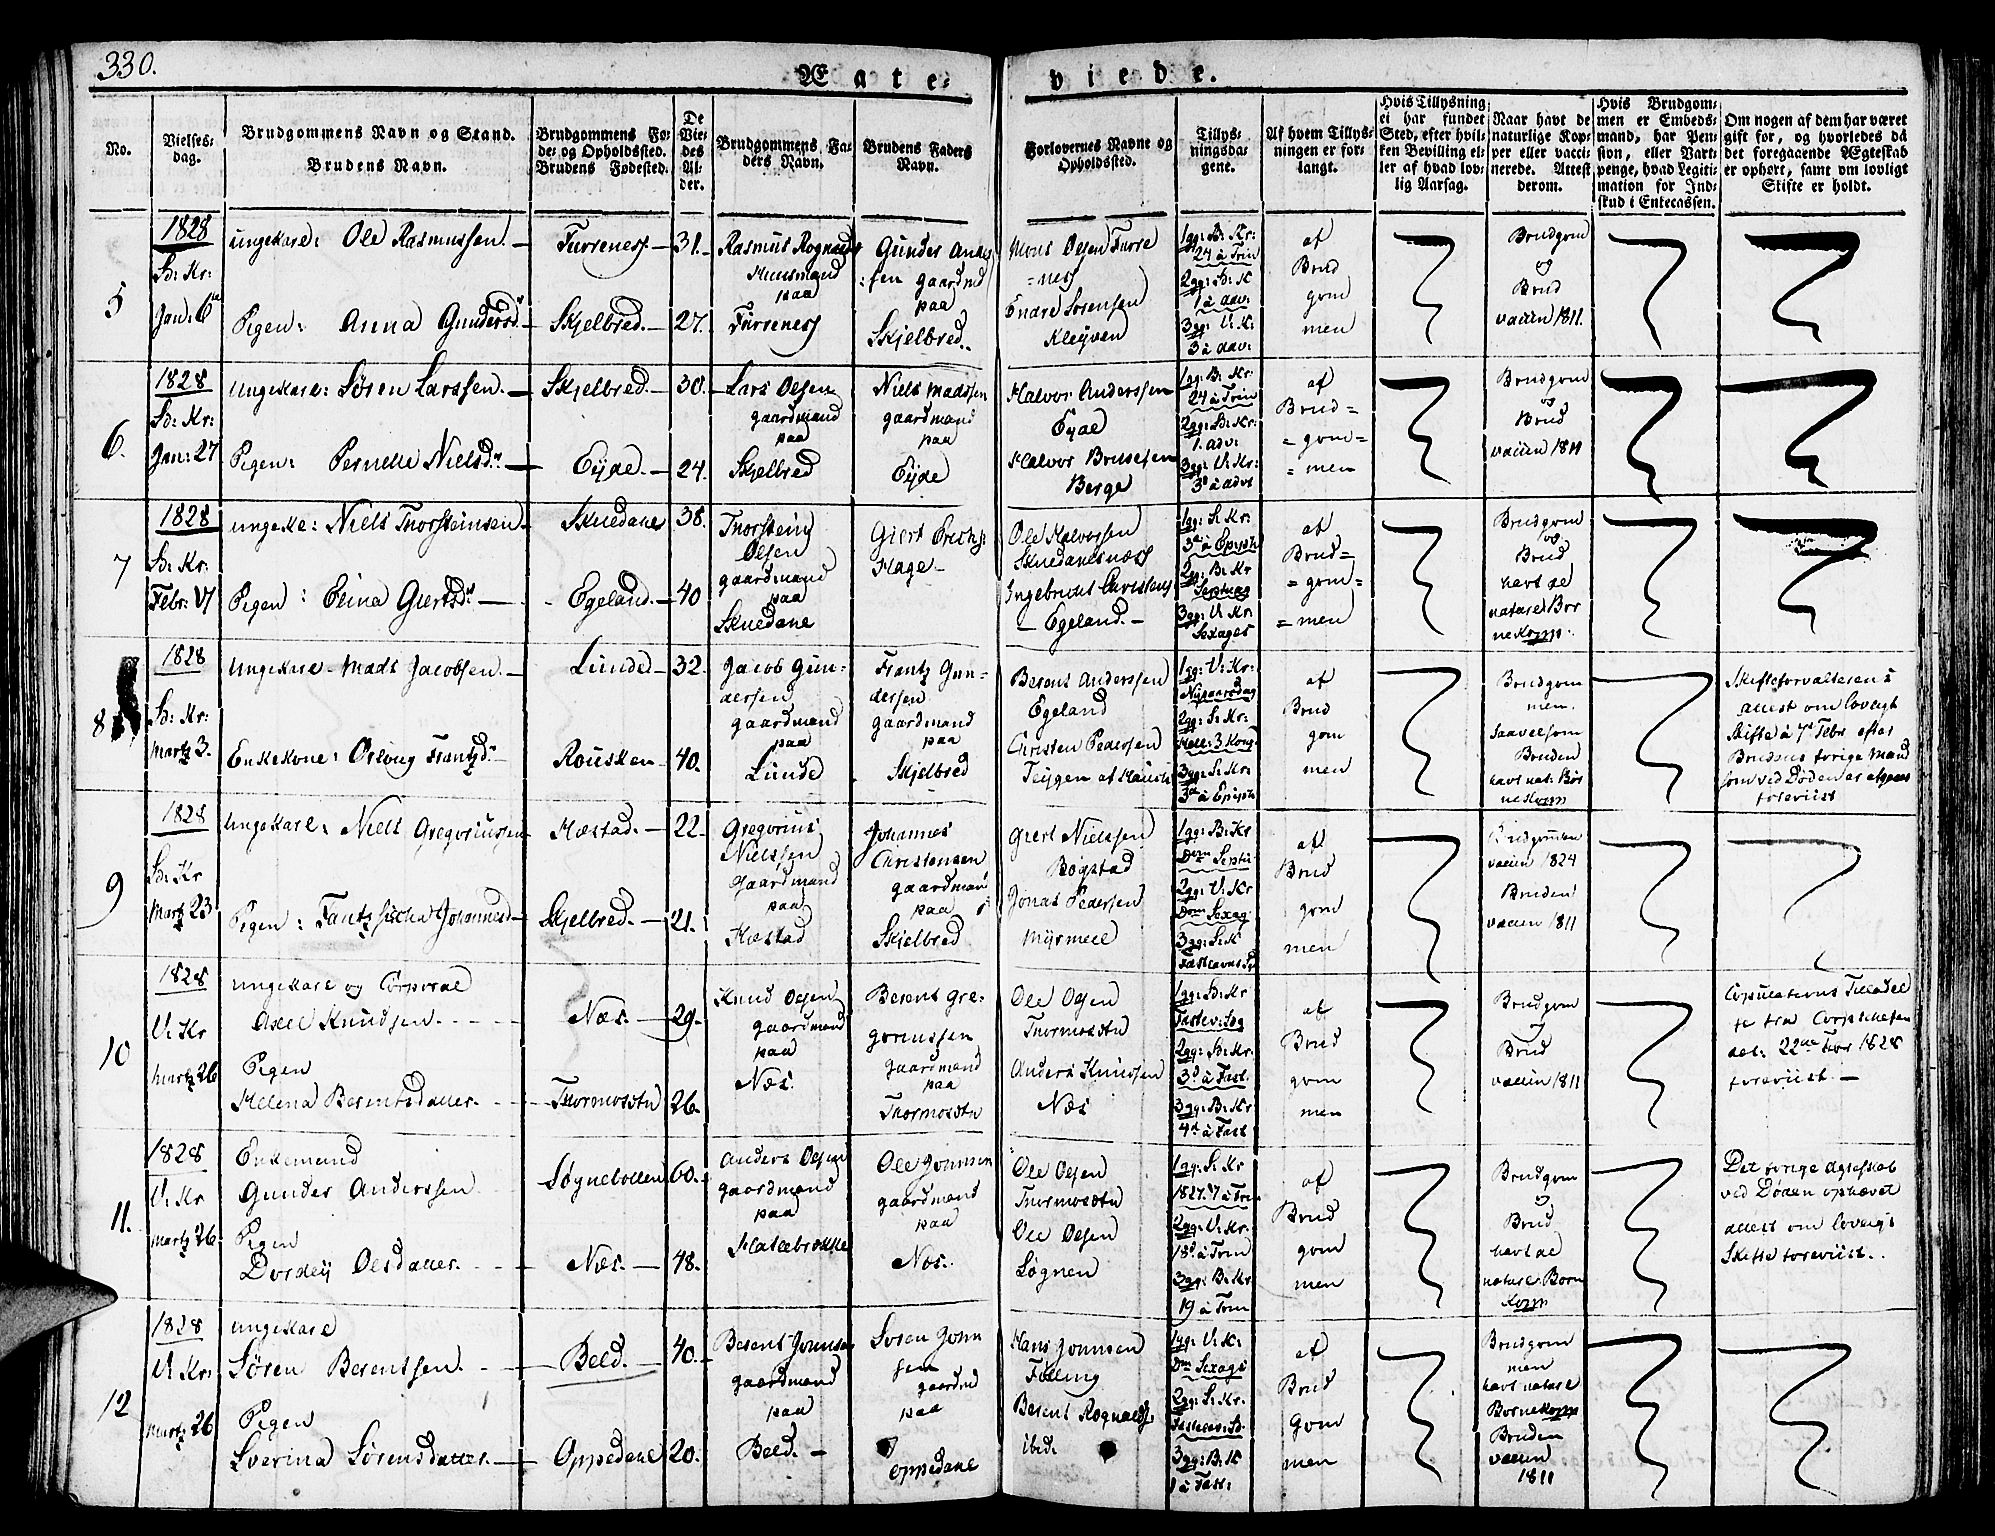 330.
Ægte-
viede.
No.
Vielses-
dag.
Brudgommens Navn og Stand.
Brudens Navn.
Brudgommens Fø-
de- og Opholdssted.
Brudens Fødested.
De
Vie-
des
Al-
der.
Brudgommens Fa-
ders Navn.
Brudens Faders
Navn.
Forlovernes Navne og
Opholdssted.
Tillys-
ningsda-
gene.
Af hvem Tillys-
ningen er for-
langt.
Hvis Tillysning
ei har fundet
Sted, efter hvil-
ken Bevilling el-
ler af hvad lov-
lig Aarsag.
Naar havt de
naturlige Kop-
per eller vacci-
nerede. Attest
derom.
Hvis Brudgom-
men er Embeds-
mand, har Pen-
sion, eller Vart-
penge, hvad Legiti-
mation for Ind-
skud i Enkecassen.
Om nogen af dem har været
gift før, og hvorledes da
det foregaaende Ægteskab
er ophørt, samt om lovligt
Skifte er holdt.
5
1828
S: Kr:
Jan: 6
ungekarl: Ole Rasmussen.
Pigen: Anna Gundersd
Furrenes
Skjelbred.
31.
27.
Rasmus Rognald
Huusmand
paa
Furrenes
Gunder Ander
sen gaardmd
paa
Skjelbred.
Mons Olsen Furre
=nes
Endre Sørensen
Kleyven
1gg: B: Kr:
24 à Trin
2gg: B: K
1 à adv:
3gg: V: K:
3 à adv:
af
Brud
gom
men
Brudgom
og
Brud
vaccin 1811.
6.
1828
S: Kr:
Jan: 27
ungekarl: Søren Larssen.
Pigen: Pernelle Nielsd
Skjelbred.
Eyde.
30.
24.
Lars Olsen
gaardmand
paa
Skjelbred
Niels Madssen
gaardmand
paa
Eyde
Halvor Anderssen
Eyde
Halvor Brusesen
Berge
1gg: B. Kr:
24 à Trin
2gg: S: Kr:
1. adv:
3gg: V: Kr:
3 à advt
af
Brud=
=gom=
=men
Brudgom
og
Brud
vaccin 1811
7
1828
S: Kr:
Febr: 17
ungekl: Niels Thorsteinsen
Pigen: Elina Giertsd
Skuedane
Egeland.
38.
40
Thorstein
Olsen
gaardmand
paa
Skuedane
Giert
Hage
Ole Halvorsen
Skuedanesnæss
Ingebrict Christens
Egeland.
1gg: S. Kr:
3 à Epiph
2gg: B. Kr
Septuag
3gg: V: Kr:
Sexages
af
Brud=
=gom=
=men
Brudgom
og
Brud
havt de
naturl Bør
nekopp.
8
1828
S: Kr:
Martz 3.
ungekarl. Mads Jacobsen
Enkekone: Oslaug Frantzd
Lunde
Rousken
32.
40.
Jacob Gun-
dersen
gaardmand
paa
Lunde
Frantz Gun-
dersen
gaardmand
paa
Skjelbred
Berent Anderssen
Egeland
Christen Pedersen
Teygen
1gg: V: Kr:
Nyaarsdag
2gg: S: Kr:
Hell: 3 Kong
3gg: S. Kr:
3 à Epiph
af
Brud
gom
men
Brudgom
men.
saavelsom
Bruden
havt nat: Bør
nekopp
Skifteforvalterens
attest om lovligt
Skifte à 7 Febr efter
Brudens forige Mand
som ved Døden er afgaaet
foreviist
9
1828
S: Kr
Martz 23
ungekarl: Niels Gregoriussen
Pigen: Johannesd
Hæstad.
Skjelbred.
22.
21.
Gregorius
Nielssen
Gaardmand
paa
Hæstad
Johannes
Christensen
gaardmand
paa
Skjelbred
Giert Nielssen
Bøgstad
Jonas Pedersen
Myrmeel
1gg: B: Kr
Septu
2gg: V: Kr
Sexag
3gg: S: K
af
Brud
gom
men
Brudgommen
vaccin 1824
Bruden
vaccin 1811
10
1828
V: Kr
Martz 26
ungekarl og Corporal
Axel Knudsen.
Pigen
Helena Berentsdatter.
Næs.
Thormodstu
29.
26.
Knud Olsen
gaardmand
paa
Næs.
Berent Gre-
goriussen
gaardmand
paa
Thormodstu
Ole Olsen
Thormodstu
Anders Knudsen
Næs
1gg: S: Kr
Fastel: Søg
2gg: S: Kr.
3 à Fast.
3gg: B: Kr
4 à Fast
af
Brud
gom
men
Brudgom
og
Brud
vaccin 1811
Copulations Tilladel
se fra Corps
1828
foreviist.
11.
1828
V: Kr
Martz 26.
Enkemand
Gunder Anderssen
Pigen
Dordey Olsdatter.
Søgnebotten
Næs.
60.
48.
Anders Olsen
gaardmand
paa
Hatlebrække
Ole Jonnsen
gaardmand
paa
Næs.
Ole Olsen
Thormodstu
Ole Olsen
Søgnen
1gg: S: Kr
1827. 17 à Trin
2gg: V: Kr:
18 à Trin
3gg: B: Kr
19 à Trin
af
Brud
gom
men
Brudgom
og
Brud
havt de
naturl: Børn
kopp
Det forige Ægteskab
ved Døden ophævet
attest om lovligt
Skifte foreviist.
12
1828
V: Kr:
Martz 26
ungekarl
Søren Berentsen.
Pigen
Severina Sørensdatter
Beld.
Oppedahl
40.
20.
Berent Jonnsen
gaardmand
paa
Beld.
Søren Jonn
sen
gaardmd
paa
Oppedahl
Hans Jonnsen
Følling
Berent Rognalds
ibid.
1gg: V: K:
Sexages
2gg: S: Kr.
3gg: B: K
1 à Fast:
af
Brud
gom
men
Brudgom
men
havt naturl
Børnekopp
Bruden
vaccin
1811